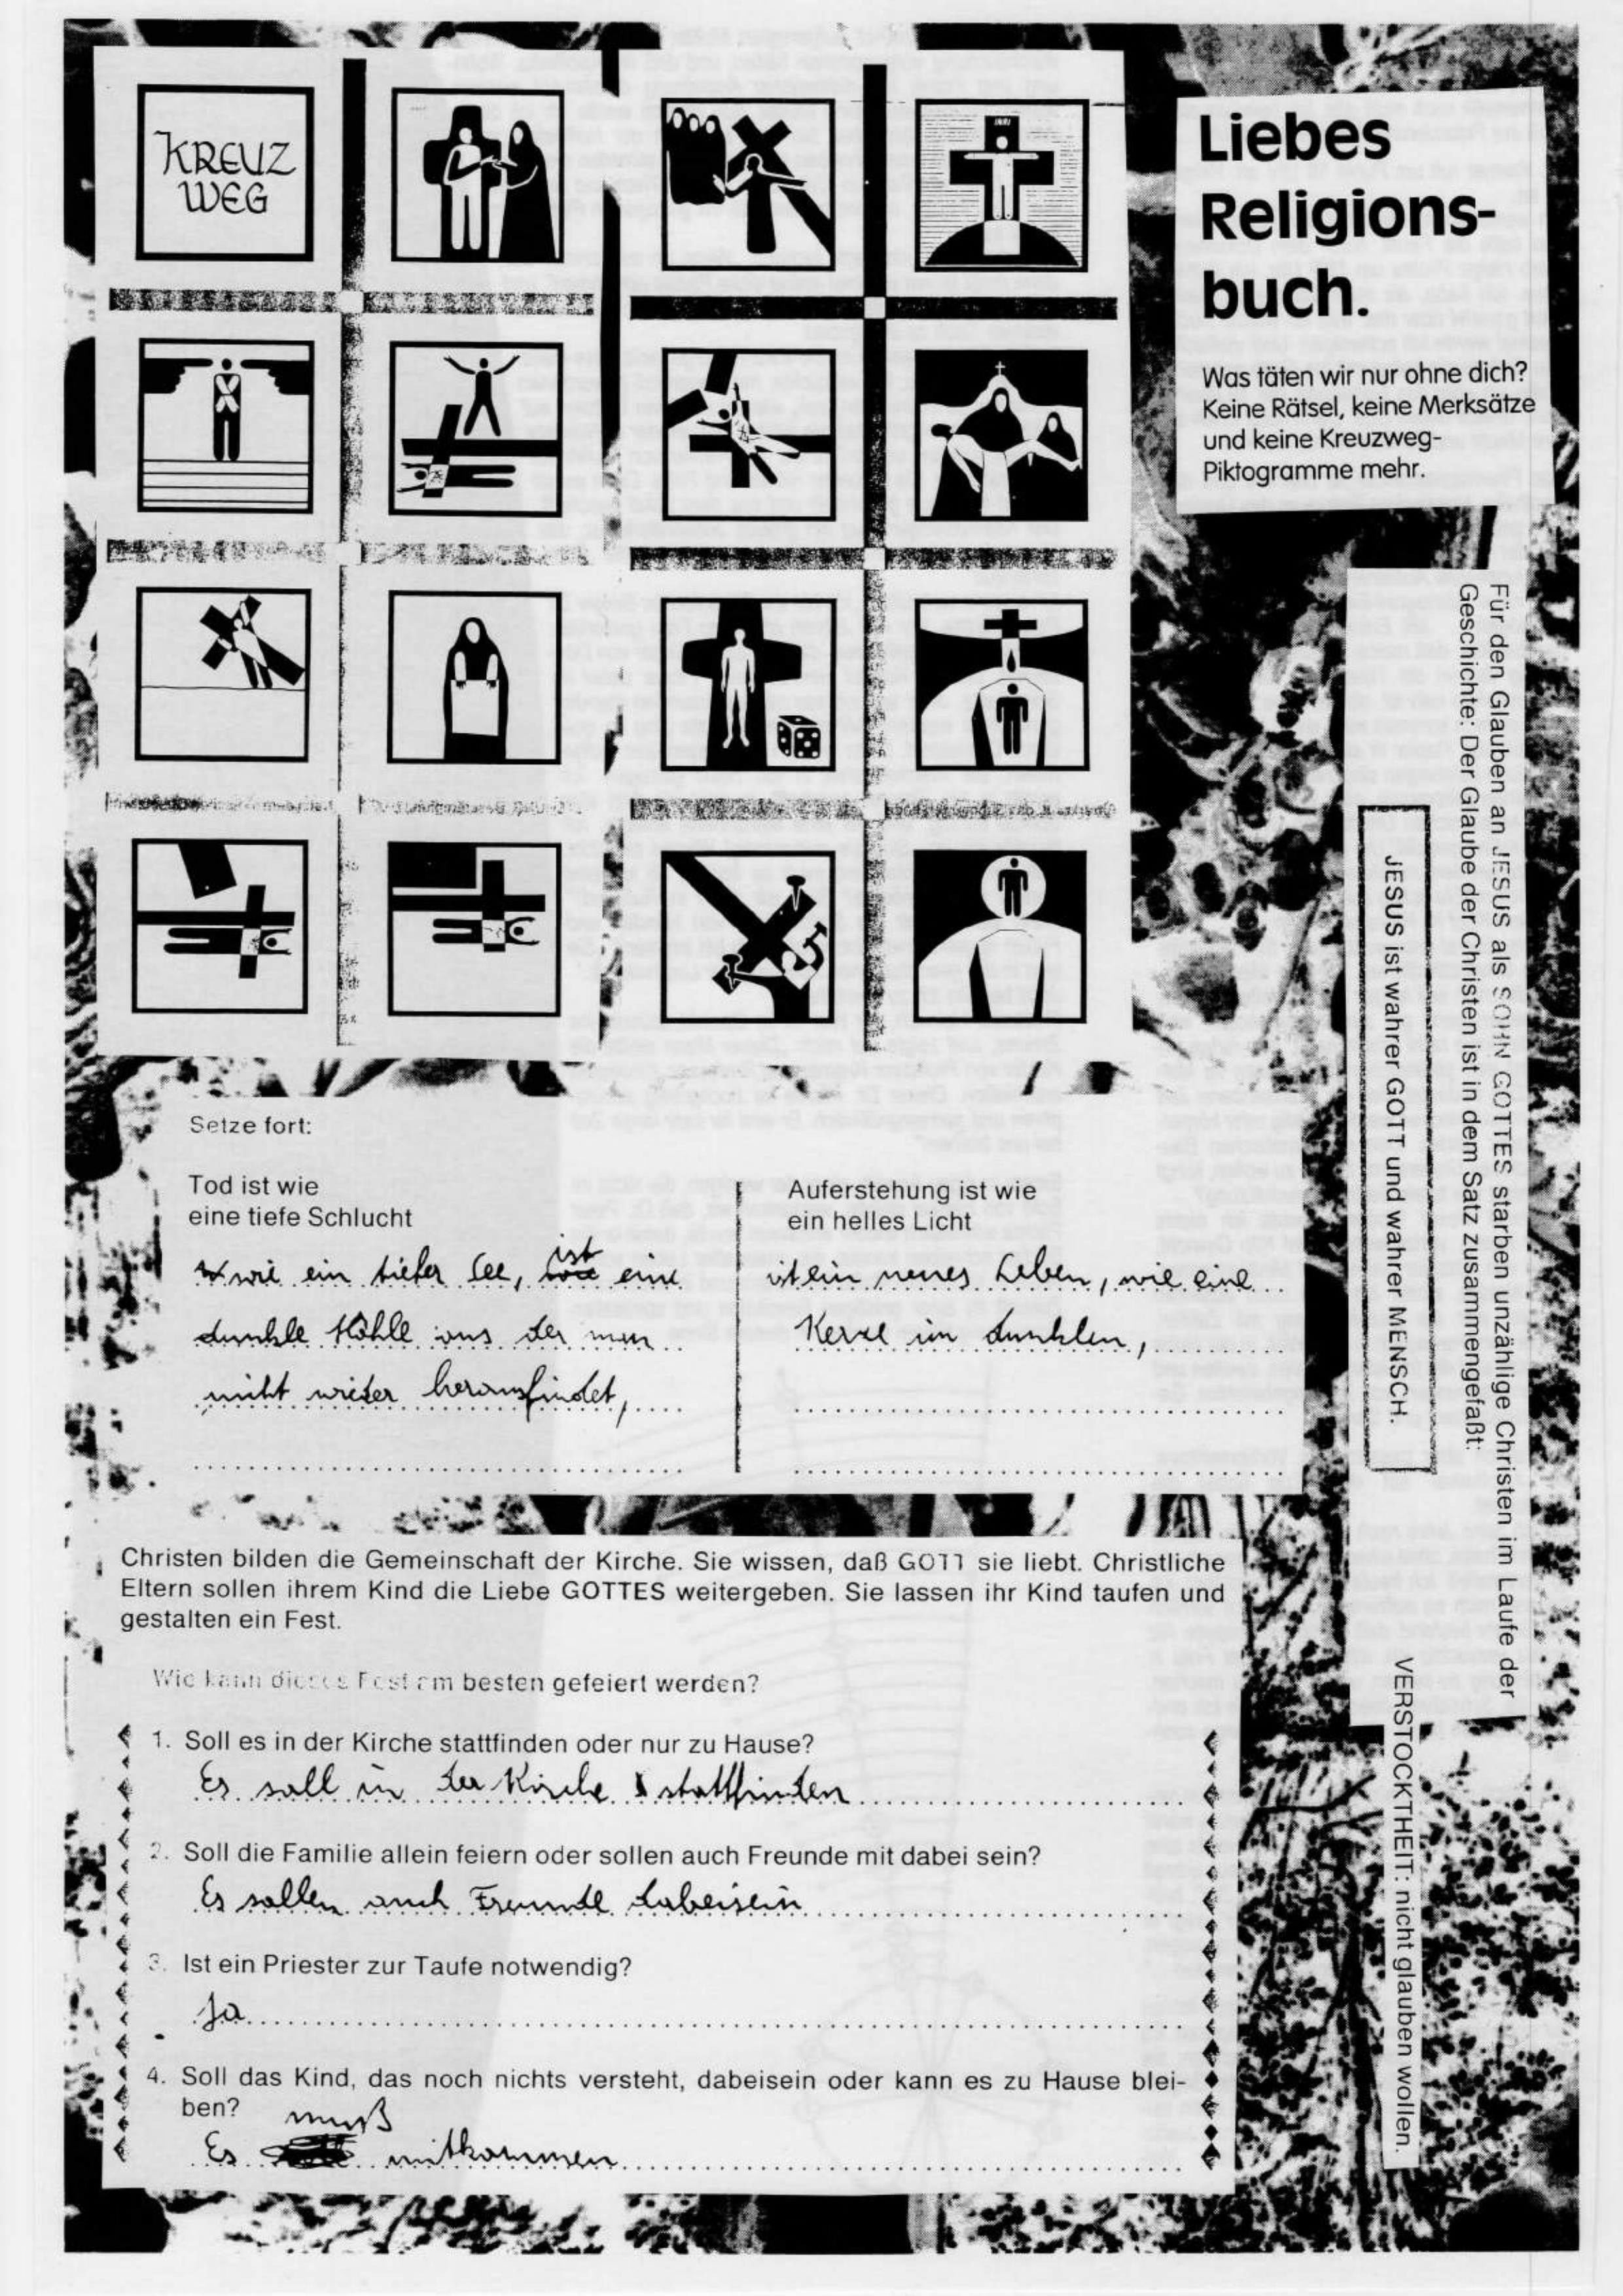 KREUZ
WEG
INRI
Liebes
Religions-
buch.
Was täten wir nur ohne dich?
Keine Rätsel, keine Merksätze
und keine Kreuzweg-
Piktogramme mehr.
Für den Glauben an JESUS als SOHN GOTTES starben unzählige Christen im Laufe der
Geschichte: Der Glaube der Christen ist in dem Satz zusammengefaßt:
JESUS ist wahrer GOTT und wahrer MENSCH.
VERSTOCKTHEIT: nicht glauben wollen.
Setze fort:
Tod ist wie
eine tiefe Schlucht
wie ein tiefer See, ist eine
dunkle Höhle aus der man
nicht wieder herausfindet,
Auferstehung ist wie
ein helles Licht
ist ein neues Leben, wie eine
Kerze im dunklen,
Christen bilden die Gemeinschaft der Kirche. Sie wissen, daß GOTT sie liebt. Christliche
Eltern sollen ihrem Kind die Liebe GOTTES weitergeben. Sie lassen ihr Kind taufen und
gestalten ein Fest.
Wie kann dieses Fest am besten gefeiert werden?
1. Soll es in der Kirche stattfinden oder nur zu Hause?
Es soll in der Kirche stattfinden
2. Soll die Familie allein feiern oder sollen auch Freunde mit dabei sein?
Es sollen auch Freunde dabeisein
3. Ist ein Priester zur Taufe notwendig?
Ja
4. Soll das Kind, das noch nichts versteht, dabeisein oder kann es zu Hause blei-
ben?
muß
Es mitkommen